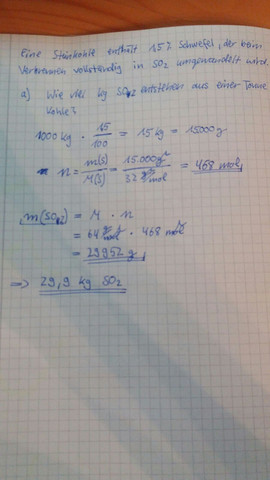 Eine Steinkohle enthält 1,5% Schwefel, der beim
Verbrennen vollständig in SO2 umgewandelt wird.
a) Wie viel kg SO2 entstehen aus einer Tonne
Kohle?
1000 kg · 1,5/100 = 15 kg = 15000 g
n = m(S)/M(S) = 15.000 g/32 g/mol = 468 mol
m(SO2) = M · n
= 64 g/mol · 468 mol
= 29952 g
=> 29,9 kg SO2